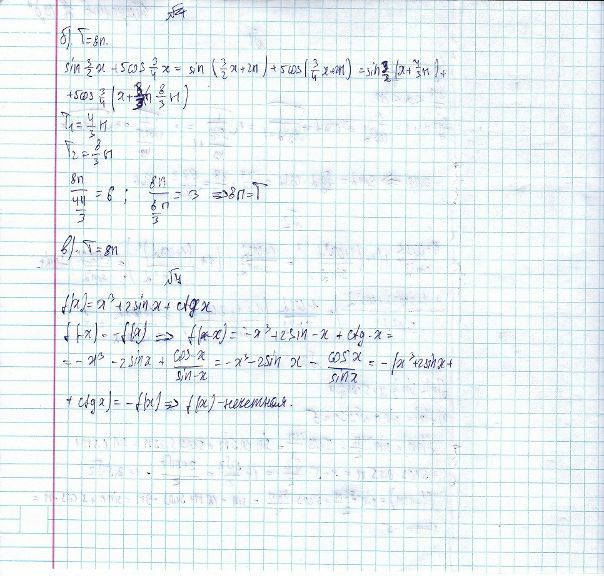 б). T=8π.
sin 3/2 x + 5cos 3/4 x = sin (3/2 x+2π) + 5cos(3/4 x+2π) = sin 3/2 (x+4/3 π) +
+5cos 3/4 (x + 8/3 π)
T₁=4/3 π
T₂=8/3 π
8π/(4π/3) = 6 ; 8π/(8π/3) = 3 ⇒ 8π=T
в). T=8π
√4
f(x)=x³+2sinx+ctgx
f(-x)=-f(x) ⇒ f(-x)=-x³+2sin-x+ctg-x=
=-x³-2sinx+cos-x/sin-x=-x³-2sin x-cosx/sinx=-(x³+2sinx+
+ctgx)=-f(x)⇒f(x)-нечетная.